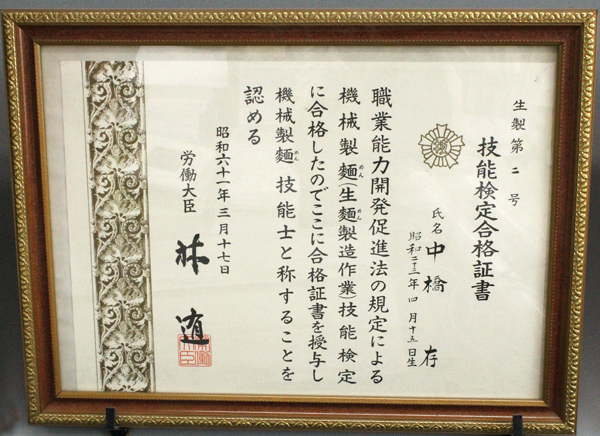 生製第二号
技能検定合格証書
氏名 中橋 存
昭和二十三年四月十五日生
職業能力開発促進法の規定による
機械製麺(生麺製造作業)技能検定
に合格したのでここに合格証書を授与し
機械製麺技能士と称することを
認める
昭和六十一年三月十七日
労働大臣 林 逎